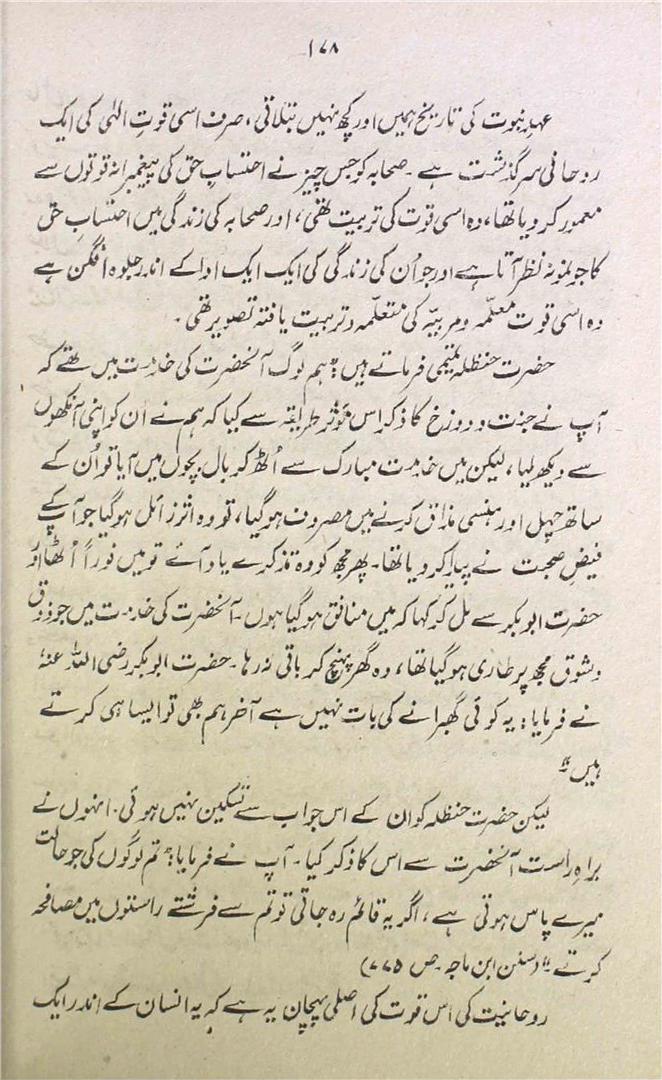 ۱۷۸
عہدِ نبوت کی تاریخ ہمیں اور کچھ نہیں بتلاتی، صرف اسی قوتِ الٰہی کی ایک
روحانی سرگذشت ہے۔ صحابہ کو جس چیز نے احتسابِ حق کی پیغمبرانہ قوتوں سے
معمور کر دیا تھا، وہ اسی قوت کی تربیت تھی، اور صحابہ کی زندگی میں احتسابِ حق
کا جو نمونہ نظر آتا ہے اور جو اُن کی زندگی کی ایک ایک ادا کے اندر جلوہ افگن ہے
وہ اسی قوت معلّمہ و مربیّہ کی متعلّمہ و تربیت یافتہ تصویر تھی۔
حضرت حنظلہ تمیمی فرماتے ہیں: "ہم لوگ آنحضرت کی خدمت میں تھے کہ
آپ نے جنت و دوزخ کا ذکر اس مؤثر طریقہ سے کیا کہ ہم نے اُن کو اپنی آنکھوں
سے دیکھ لیا، لیکن میں خدمت مبارک سے اُٹھ کر بال بچوں میں آیا تو اُن کے
ساتھ چہل اور ہنسی مذاق کرنے میں مصروف ہو گیا، تو وہ اثر زائل ہو گیا جو آپ کے
فیضِ صحبت نے پیدا کر دیا تھا۔ پھر مجھ کو وہ تذکرے یاد آئے تو میں فوراً اُٹھا اور
حضرت ابوبکر سے مل کر کہا کہ میں منافق ہو گیا ہوں۔ آنحضرت کی خدمت میں جو ذوق
و شوق مجھ پر طاری ہو گیا تھا، وہ گھر پہنچ کر باقی نہ رہا۔ حضرت ابوبکر رضی اللہ عنہٗ
نے فرمایا: یہ کوئی گھبرانے کی بات نہیں ہے آخر ہم بھی تو ایسا ہی کرتے
ہیں"
لیکن حضرت حنظلہ کو ان کے اس جواب سے تسکین نہیں ہوئی۔ انہوں نے
براہِ راست آنحضرت سے اس کا ذکر کیا۔ آپ نے فرمایا: "تم لوگوں کی جو حالت
میرے پاس ہوتی ہے، اگر یہ قائم رہ جاتی تو تم سے فرشتے راستوں میں مصافحہ
کرتے" (سنن ابن ماجہ ص ۷۷۵)
روحانیت کی اس قوت کی اصلی پہچان یہ ہے کہ یہ انسان کے اندر ایک